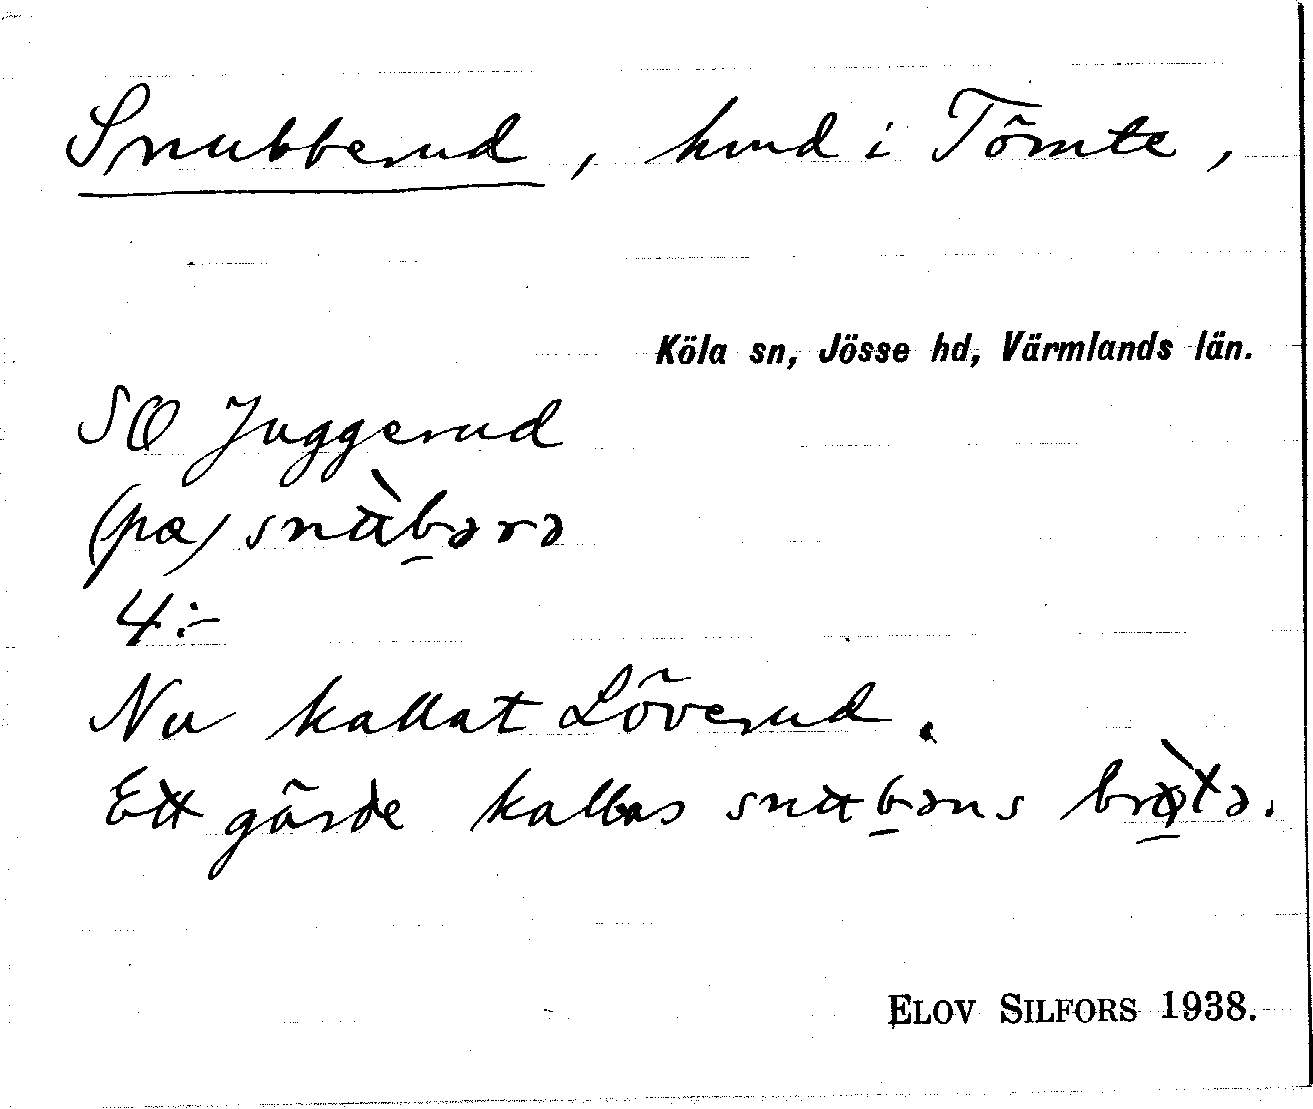 Snubberud, hmd i Tömte,
Köla sn, Jösse hd, Värmlands län.
SO Juggerud
(pæ) snùbərə
4:-
Nu kallat Löverud.
Ett gärde kallas snubəns brø̀tə.
ELOV SILFORS 1938.